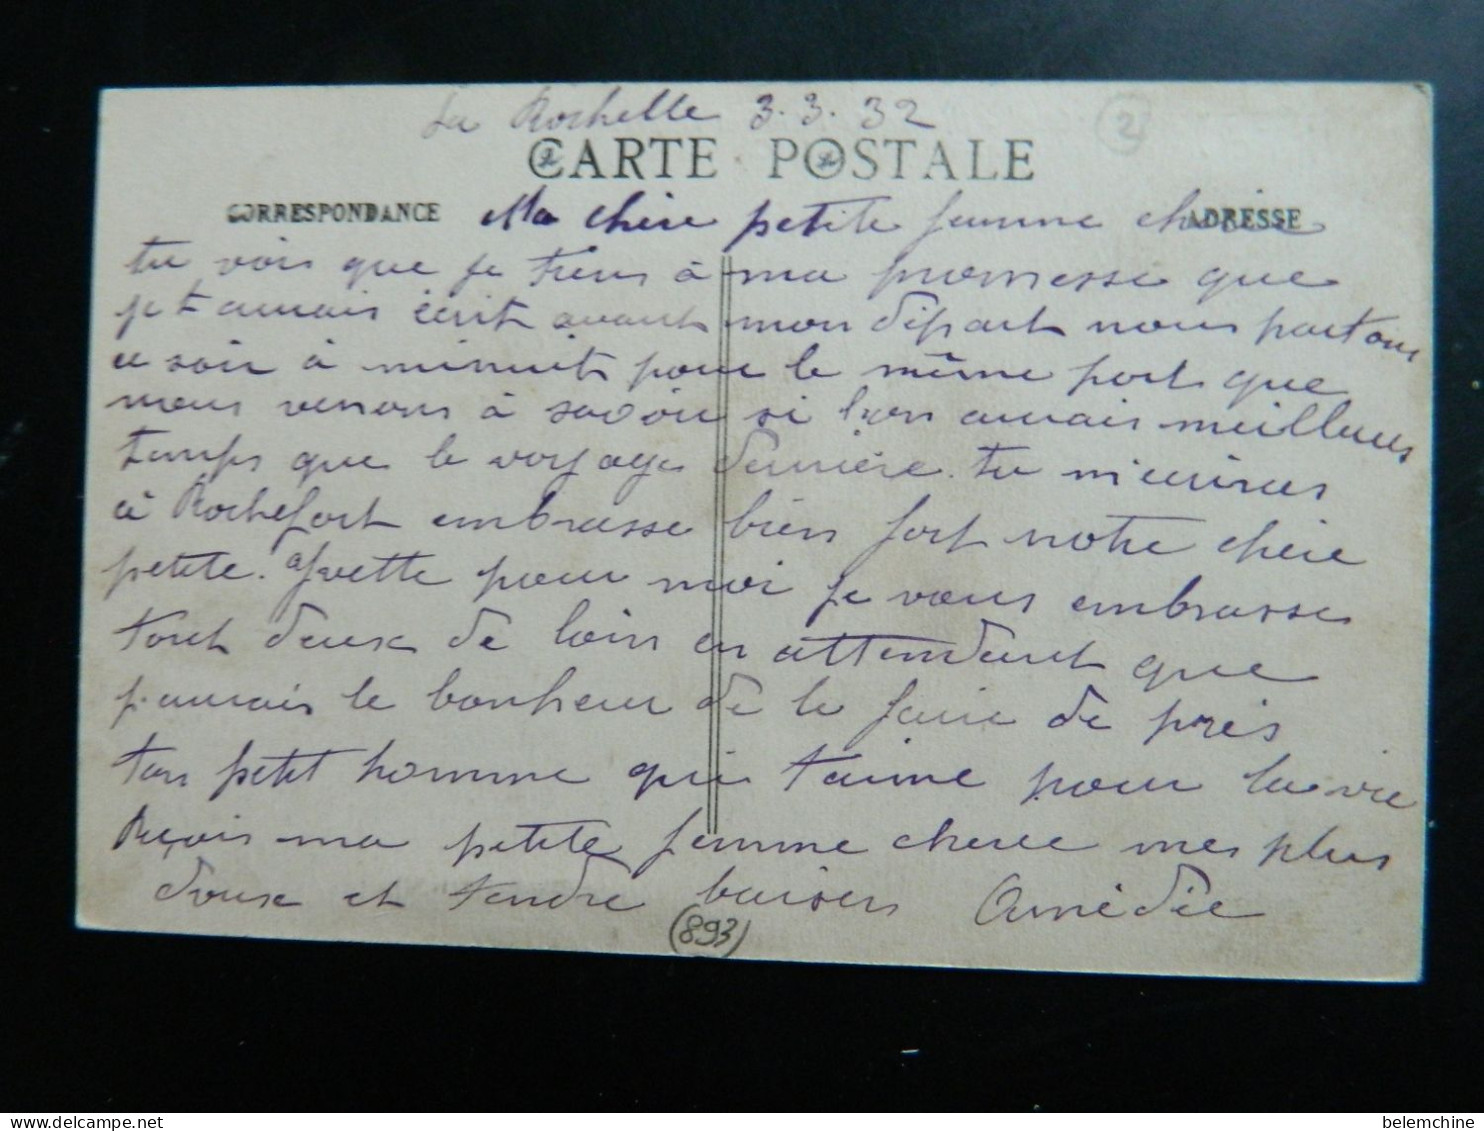 La Rochelle 3.3.32
2
CARTE POSTALE
CORRESPONDANCE
ADRESSE
Ma chère petite femme cherie
tu vois que je tiens à ma promesse que
je t'aurais écrit avant mon départ nous partons
ce soir à minuit pour le même port que
nous venons à savoir si l'on aurais meilleurs
temps que le voyage dernière. tu m'ecriras
à Rochefort embrasse bien fort notre chère
petite. Yvette pour moi je vous embrasse
tout deux de loin en attendant que
j'aurais le bonheur de le faire de près
ton petit homme qui t'aime pour la vie
Reçois ma petite femme cheree mes plus
doux et tendre baisers Amédée
(893)
belemchine